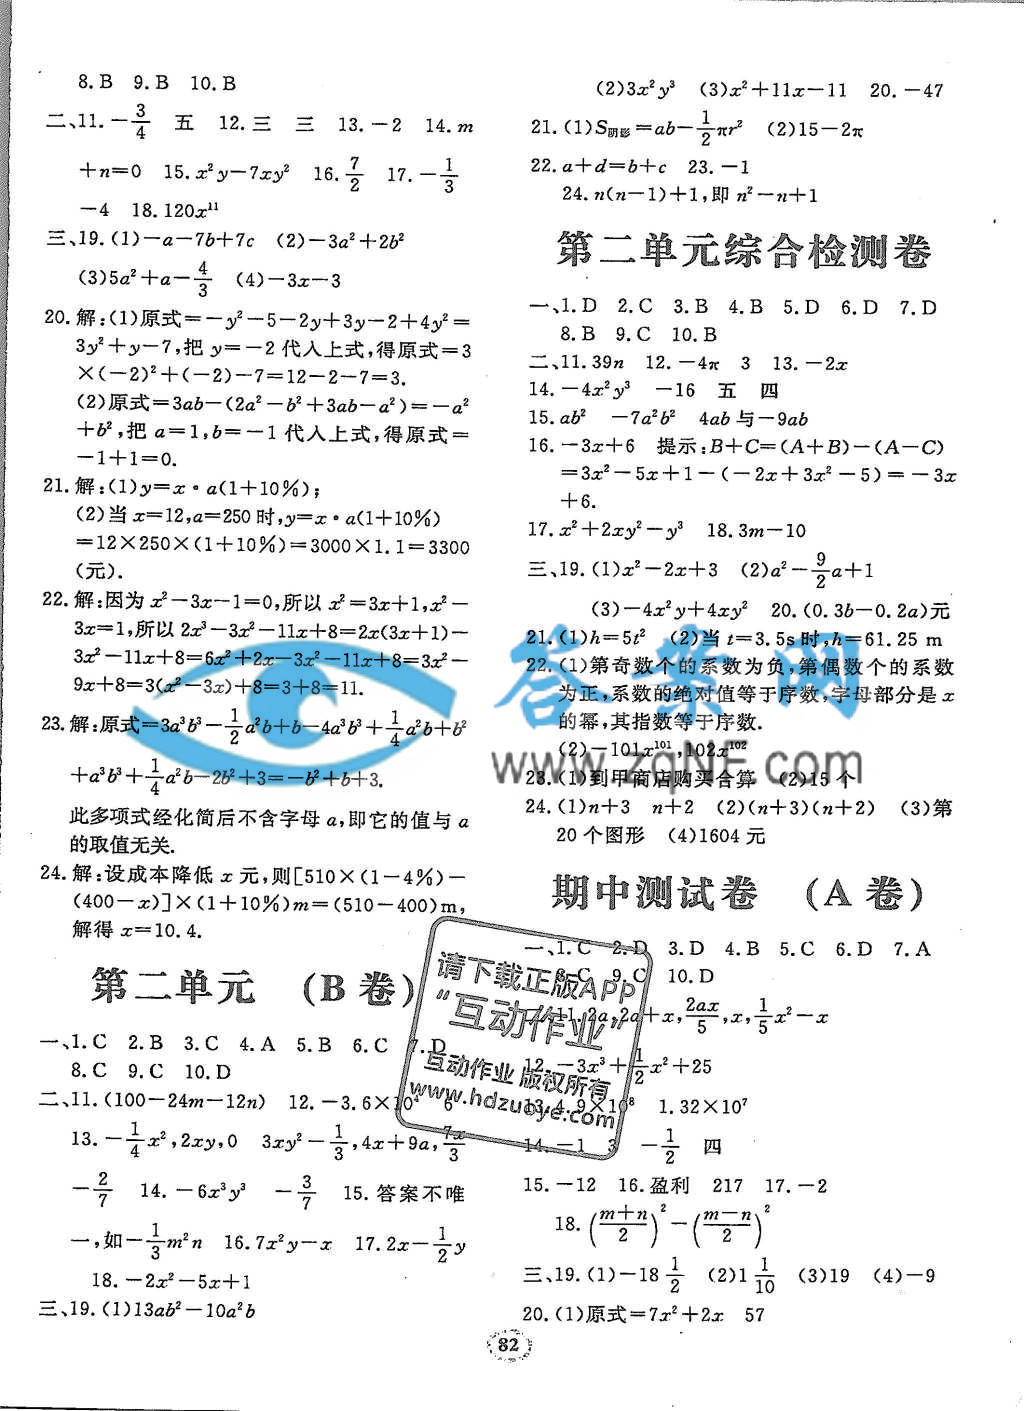 8.B 9.B 10.B
二、11.-3/4 五 12.三 三 13.-2 14.m
+n=0 15.x²y-7xy² 16.7/2 17.-1/3
-4 18.120x¹¹
三、19.(1)-a-7b+7c (2)-3a²+2b²
(3)5a²+a-4/3 (4)-3x-3
20.解:(1)原式=-y²-5-2y+3y-2+4y²=
3y²+y-7,把 y=-2 代入上式,得原式=3
×(-2)²+(-2)-7=12-2-7=3.
(2)原式=3ab-(2a²-b²+3ab-a²)=-a²
+b²,把 a=1,b=-1 代入上式,得原式=
-1+1=0.
21.解:(1)y=x·a(1+10%);
(2)当 x=12,a=250 时,y=x·a(1+10%)
=12×250×(1+10%)=3000×1.1=3300
(元).
22.解:因为 x²-3x-1=0,所以 x²=3x+1,x²-
3x=1,所以 2x³-3x²-11x+8=2x(3x+1)-
3x²-11x+8=6x²+2x-3x²-11x+8=3x²-
9x+8=3(x²-3x)+8=3+8=11.
23.解:原式=3a³b³-1/2a²b+b-4a³b³+1/4a²b+b²
+a³b³+1/4a²b-2b²+3=-b²+b+3.
此多项式经化简后不含字母 a,即它的值与 a
的取值无关.
24.解:设成本降低 x 元,则[510×(1-4%)-
(400-x)]×(1+10%)m=(510-400)m,
解得 x=10.4.
第二单元 (B卷)
一、1.C 2.B 3.C 4.A 5.B 6.C 7.D
8.C 9.C 10.D
二、11.(100-24m-12n) 12.-3.6×10⁴ 6
13.-1/4x²,2xy,0 3xy²-1/3,4x+9a,7x/3
-2/7 14.-6x³y³ -3/7 15.答案不唯
一,如-1/3m²n 16.7x²y-x 17.2x-1/2y
18.-2x²-5x+1
三、19.(1)13ab²-10a²b
(2)3x²y³ (3)x²+11x-11 20.-47
21.(1)S阴影=ab-1/2πr² (2)15-2π
22.a+d=b+c 23.-1
24.n(n-1)+1,即 n²-n+1
第二单元综合检测卷
一、1.D 2.C 3.B 4.B 5.D 6.D 7.D
8.B 9.C 10.B
二、11.39n 12.-4π 3 13.-2x
14.-4x²y³ -16 五 四
15.ab² -7a²b² 4ab与-9ab
16.-3x+6 提示:B+C=(A+B)-(A-C)
=3x²-5x+1-(-2x+3x²-5)=-3x
+6.
17.x²+2xy²-y³ 18.3m-10
三、19.(1)x²-2x+3 (2)a²-9/2a+1
(3)-4x²y+4xy² 20.(0.3b-0.2a)元
21.(1)h=5t² (2)当 t=3.5s时,h=61.25 m
22.(1)第奇数个的系数为负,第偶数个的系数
为正,系数的绝对值等于序数,字母部分是 x
的幂,其指数等于序数.
(2)-101x¹⁰¹,102x¹⁰²
23.(1)到甲商店购买合算 (2)15 个
24.(1)n+3 n+2 (2)(n+3)(n+2) (3)第
20个图形 (4)1604 元
期中测试卷 (A卷)
一、1.C 2.D 3.D 4.B 5.C 6.D 7.A
8.C 9.C 10.D
二、11.2a,2a+x,2ax/5,x,1/5x²-x
12.-3x³+1/2x²+25
13.4.9×10⁸ 1.32×10⁷
14.-1 3 -1/2 四
15.-12 16.盈利 217 17.-2
18.((m+n)/2)²-((m-n)/2)²
三、19.(1)-18 1/2 (2)1 1/10 (3)19 (4)-9
20.(1)原式=7x²+2x 57
82
答案网
www.zqNF.com
请下载正版APP
“互动作业”
互动作业 版权所有
www.hdzuoye.com